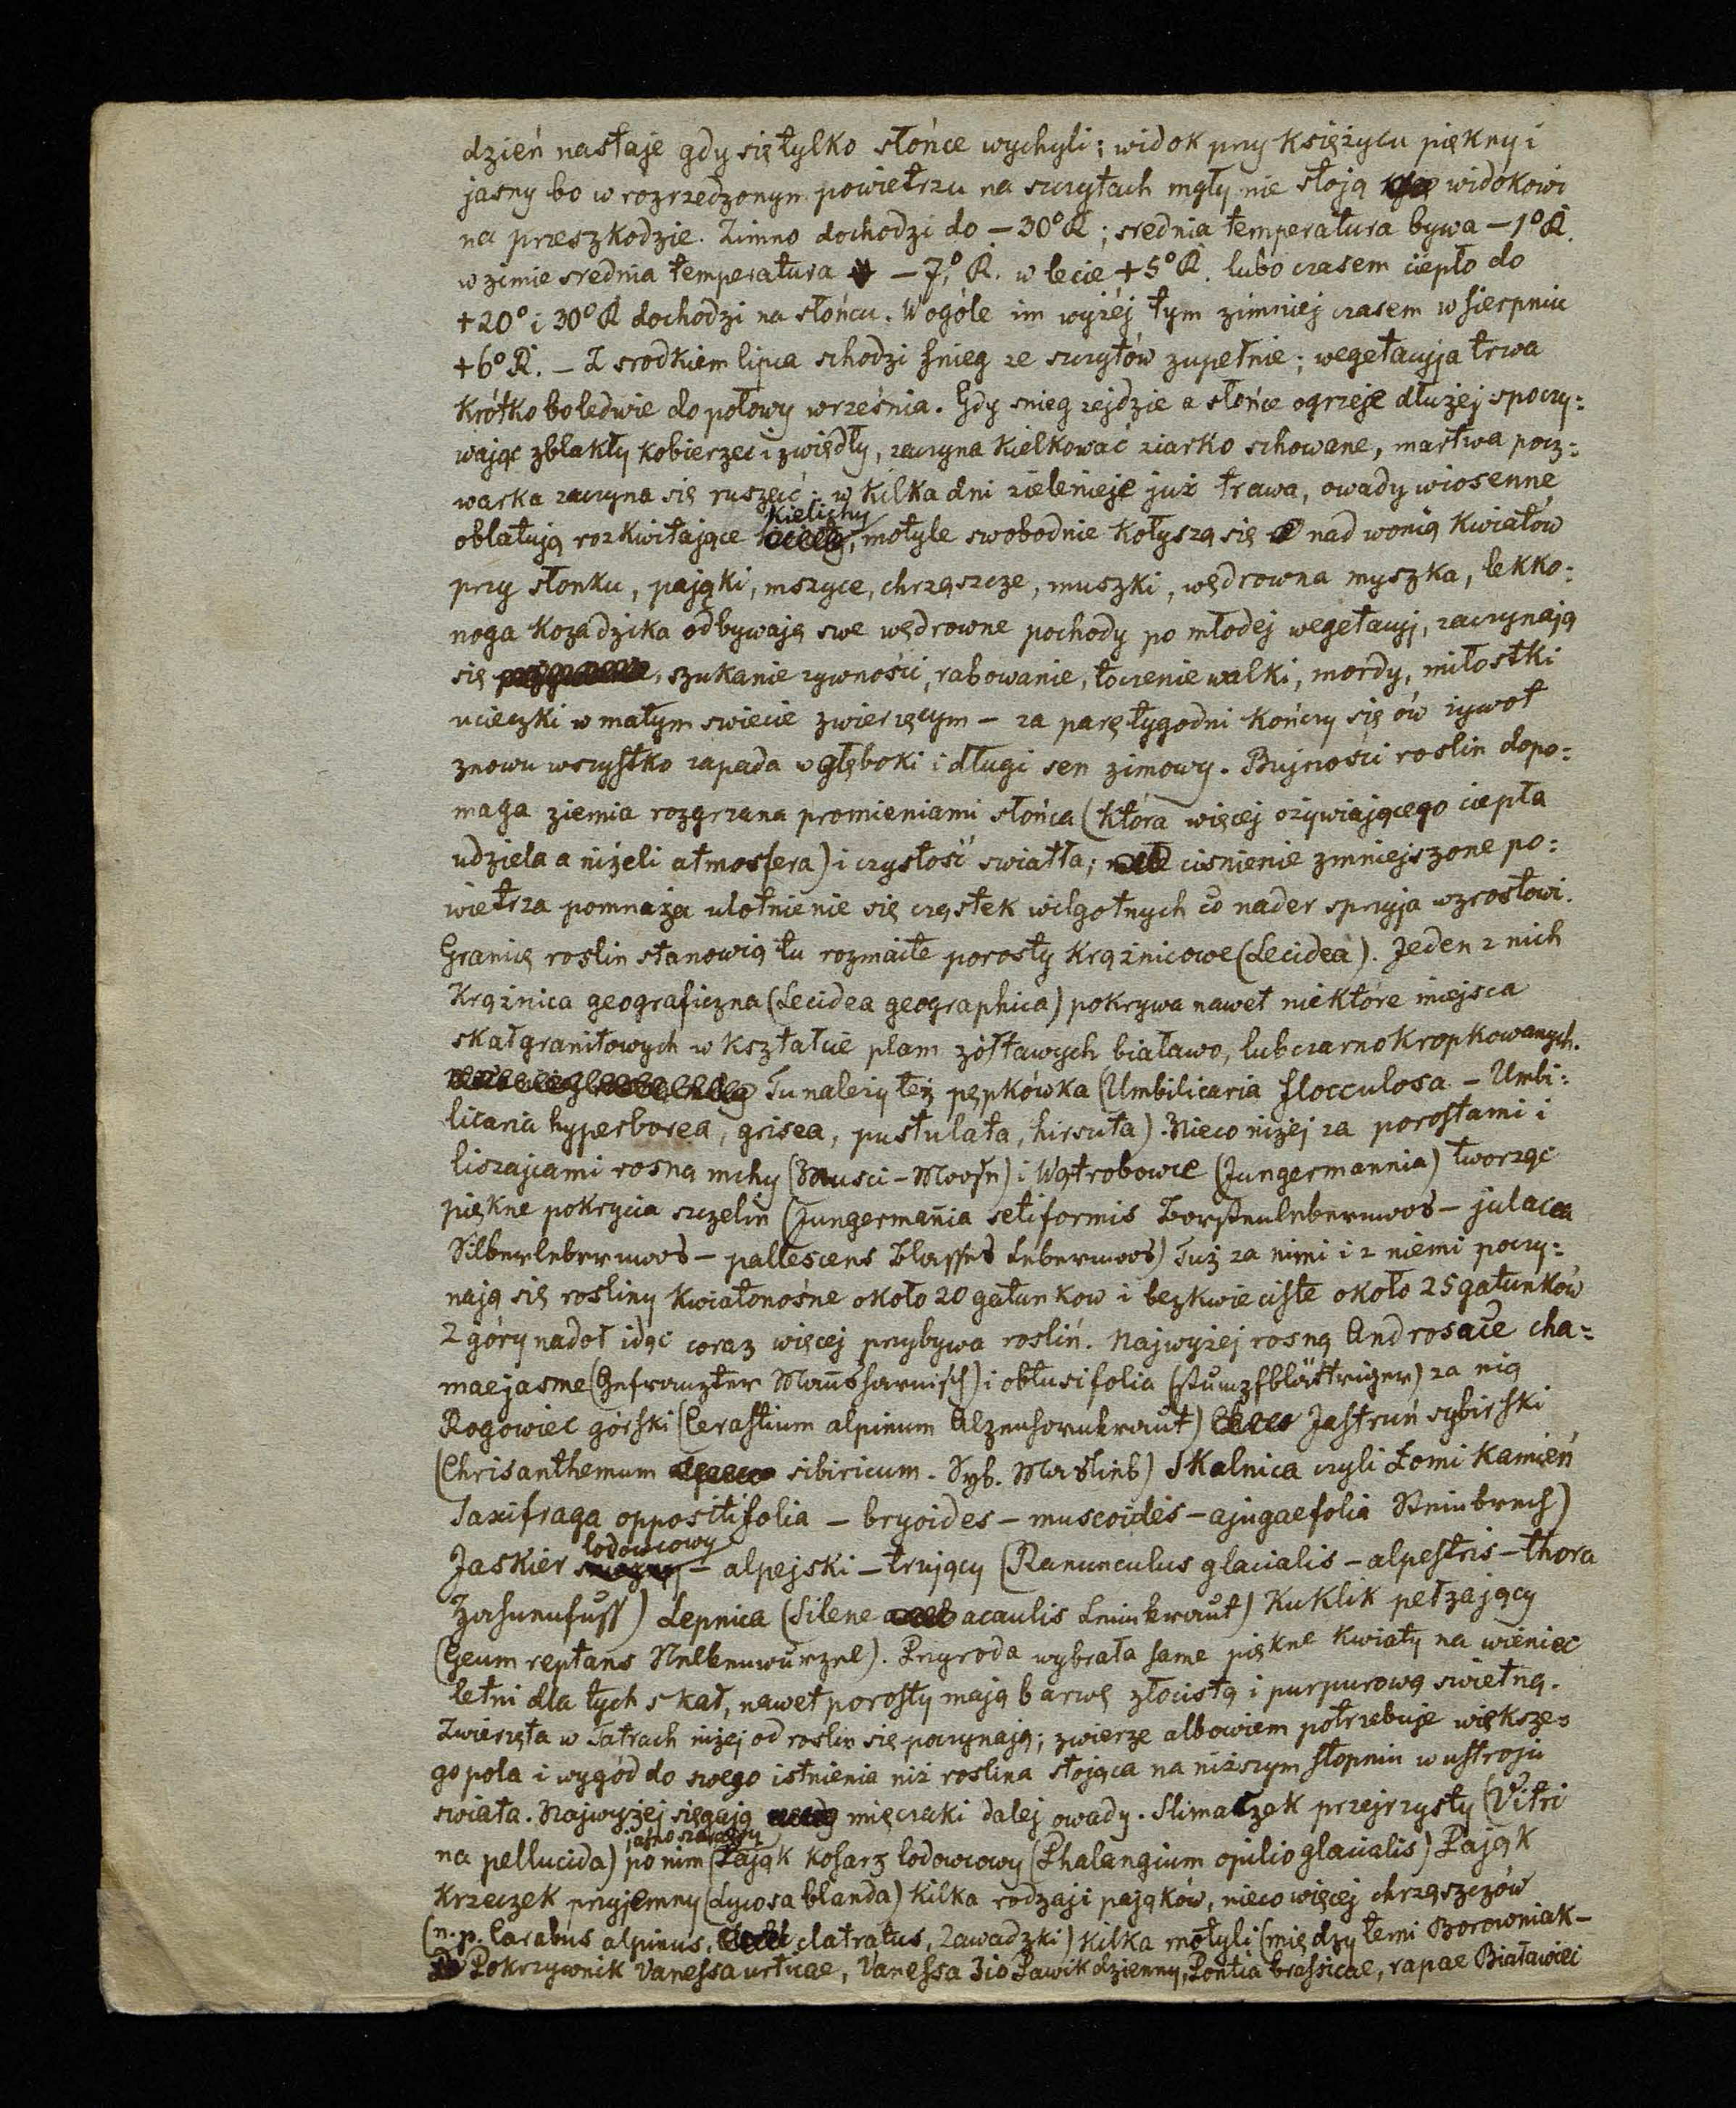 dzień nastaje gdy się tylko słońce wychyli; widok przy księżycu piękny i
jasny bo w rozrzedzonym powietrzu na szczytach mgły nie stoją widokowi
na przeszkodzie. Zimno dochodzi do – 30° R; srednia temperatura bywa – 1° R.
w zimie srednia temperatura – 7,° R. w lecie + 5° R. lubo czasem ciepło do
+ 20° i 30° R dochodzi na słońcu. Wogóle im wyżéj tym zimniej czasem w sierpniu
+ 6° R. – Z srodkiem lipca schodzi snieg ze szczytów zupełnie; wegetacyja trwa
krótko bo ledwie do połowy września. Gdy snieg zejdzie a słońce ogrzeje dłużej spoczy:
wając zblakły kobierzec i zwiędły, zaczyna kiełkować ziarko schowane, martwa pocz:
warka zaczyna się ruszać; w kilka dni zielenieje już trawa, owady wiosenne
oblatują rozkwitające kielichy, motyle swobodnie kołyszą się nad wonią kwiatów
przy słonku, pająki, mszyce, chrząszcze, muszki, wędrowna myszka, lekko:
noga koza dzika odbywają swe wędrowne pochody po młodej wegetacyj, zaczynają
się szukanie zywności, rabowanie, toczenie walki, mordy, miłostki
ucieczki w małym swiecie zwierzęcym – za parę tygodni kończy się ów zywot
znowu wszystko zapada w głęboki i długi sen zimowy. Bujności roslin dopo:
maga ziemia rozgrzana promieniami słońca (która więcej ożywiającego ciepła
udziela a niżeli atmosfera) i czystość swiatła; cisnienie zmniejszone po:
wietrza pomnaża ulotnienie się cząstek wilgotnych co nader sprzyja wzrostowi.
Granię roslin stanowią tu rozmaite porosty krążnicowe (Lecidea). Jeden z nich
Krążnica geograficzna (Lecidea geographica) pokrywa nawet niektóre miejsca
skał granitowych w kształcie plam żółtawych białawo, lub czarno kropkowanych.
Tu należy też pępkówka (Umbilicaria flocculosa – Umbi:
licaria hyperborea, grisea, pustulata, hirsuta). Nieco niżej za porostami i
liszajcami rosną mchy (Musci – Moose) i Wątrobowce (Jungermannia) tworząc
piękne pokrycia szczelin (Jungermania setiformis Borstenlebermoos – julacea
Silberlebermoos – pallescens Blasses Lebermoos) Tuż za nimi i z niemi poczy:
nają się rosliny kwiatonośne około 20 gatunkow i bezkwieciste około 25 gatunków
Z góry nadoł idąc coraz więcej przybywa roslin. Najwyżej rosną Androsace cha:
maejasme (Gefranzter Mannsharnisch) i obtusifolia (stumpfblättriger) za nią
Rogowiec górski (Cerastium alpinum Alpenhornkraut) Jastruń sybirski
(Chrisanthemum sibiricum. Syb. Maslieb) Skalnica czyli Łomi kamień
Saxifraga oppositifolia – bryoides – muscoides – ajugaefolia Steinbrech)
Jaskier lodowcowy – alpejski – trujący (Ranunculus glacialis – alpestris – thora
Hahnenfuss) Lepnica (Silene acaulis Leimkraut) Kuklik pełzający
(Geum reptans Nelkenwurzel). Przyroda wybrała same piękne kwiaty na wieniec
letni dla tych skał, nawet porosty mają barwę złocistą i purpurową swietną.
Zwierzęta w Tatrach niżej od roslin się poczynają; zwierze albowiem potrzebuje większe:
go pola i wygód do swego istnienia niż roslina stojąca na niższym stopniu w ustroju
swiata. Najwyżej sięgają mięczaki dalej owady. Slimaczek przejrzysty (Vitri
na pellucida) po nim jasno szarawy (Pająk kosarz lodowcowy (Phalangium opilio glacialis) Pająk
krzeczek przyjemny (Lycosa blanda) kilka rodzaji pająków, nieco więcej chrząszczów
(n. p. Carabus alpinus, clatratus, Zawadzki) kilka motyli (między temi Borowniak –
Pokrzywnik Vanessa urticae, Vanessa Jio Pawik dzienny, Pontia brassicae, rapae Białawiec